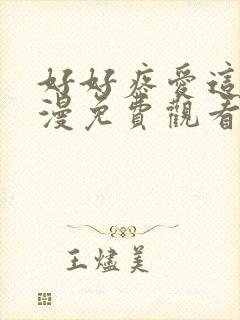 好好疼愛這
漫免費觀看
王燼美